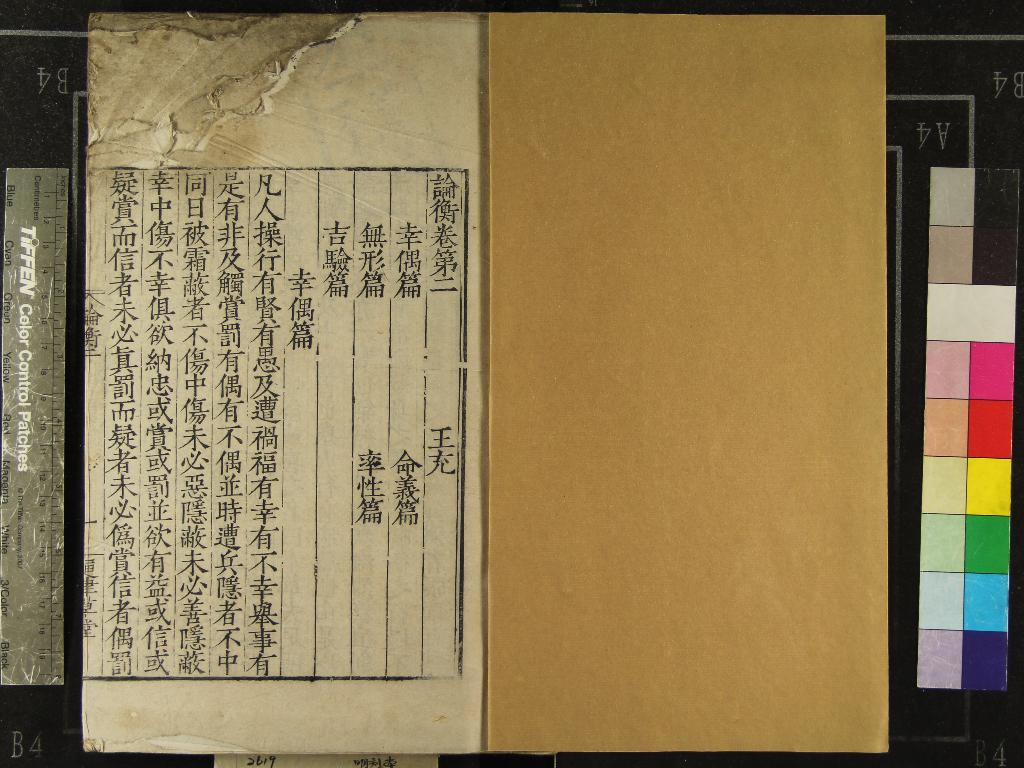 論衡卷第二 王充
幸偶篇 命義篇
無形篇 率性篇
吉驗篇
幸偶篇
凡人操行有賢有愚及遭禍福有幸有不幸舉事有
是有非及觸賞罰有偶有不偶並時遭兵隱者不中
同日被霜蔽者不傷中傷未必惡隱蔽未必善隱蔽
幸中傷不幸俱欲納忠或賞或罰並欲有益或信或
疑賞而信者未必真罰而疑者未必僞賞信者偶罰
論衡二
一
草堂
B4
B4
A4
B4
B4
TIFFEN Color Control Patches
Centimetres
Inches
Blue
Cyan
Green
Yellow
Red
Magenta
White
3/Color
Black
2619